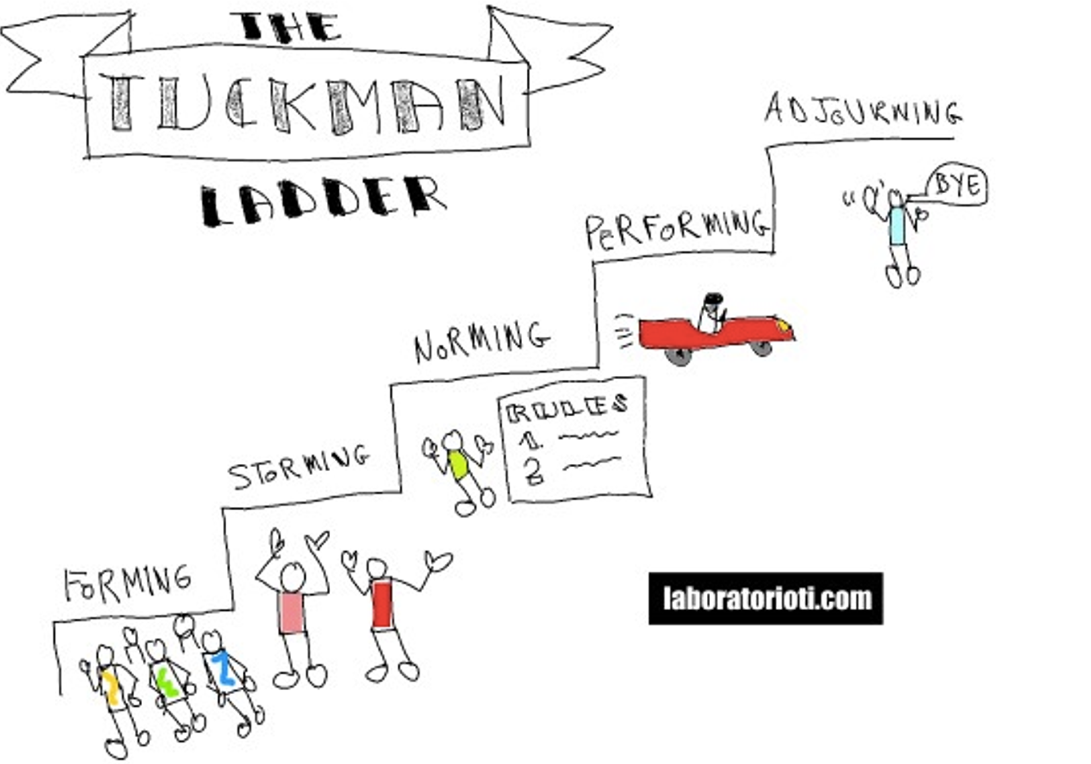 THE
TUCKMAN
LADDER
ADJOURNING
BYE
PERFORMING
NORMING
RULES
1.
2
STORMING
FORMING
laboratorioti.com